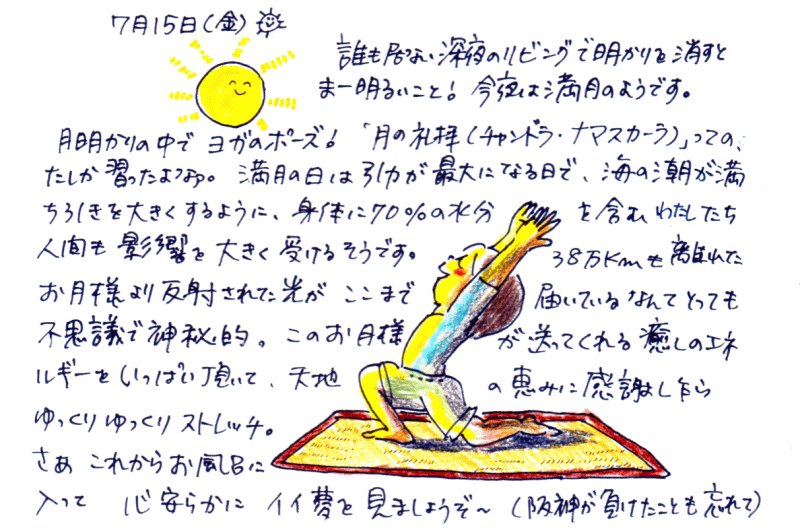 7月15日(金)
誰も居ない深夜のリビングで明かりを消すと
まー明るいこと! 今夜は満月のようです。
月明かりの中で ヨガのポーズ! 「月の礼拝(チャンドラ・ナマスカーラ)」っての、
たしか習ったよなァ。 満月の日は引力が最大になる日で、海の潮が満
ち引きを大きくするように、身体に70%の水分を含むわたしたち
人間も影響を大きく受けるそうです。 38万Kmも離れた
お月様より反射された光がここまで届いているなんてとっても
不思議で神秘的。このお月様が送ってくれる癒しのエネ
ルギーをいっぱい頂いて、天地の恵みに感謝しながら
ゆっくりゆっくりストレッチ。
さあ これからお風呂に
入って 心安らかに イイ夢を見ましょうぞ〜 (阪神が負けたことも忘れて)